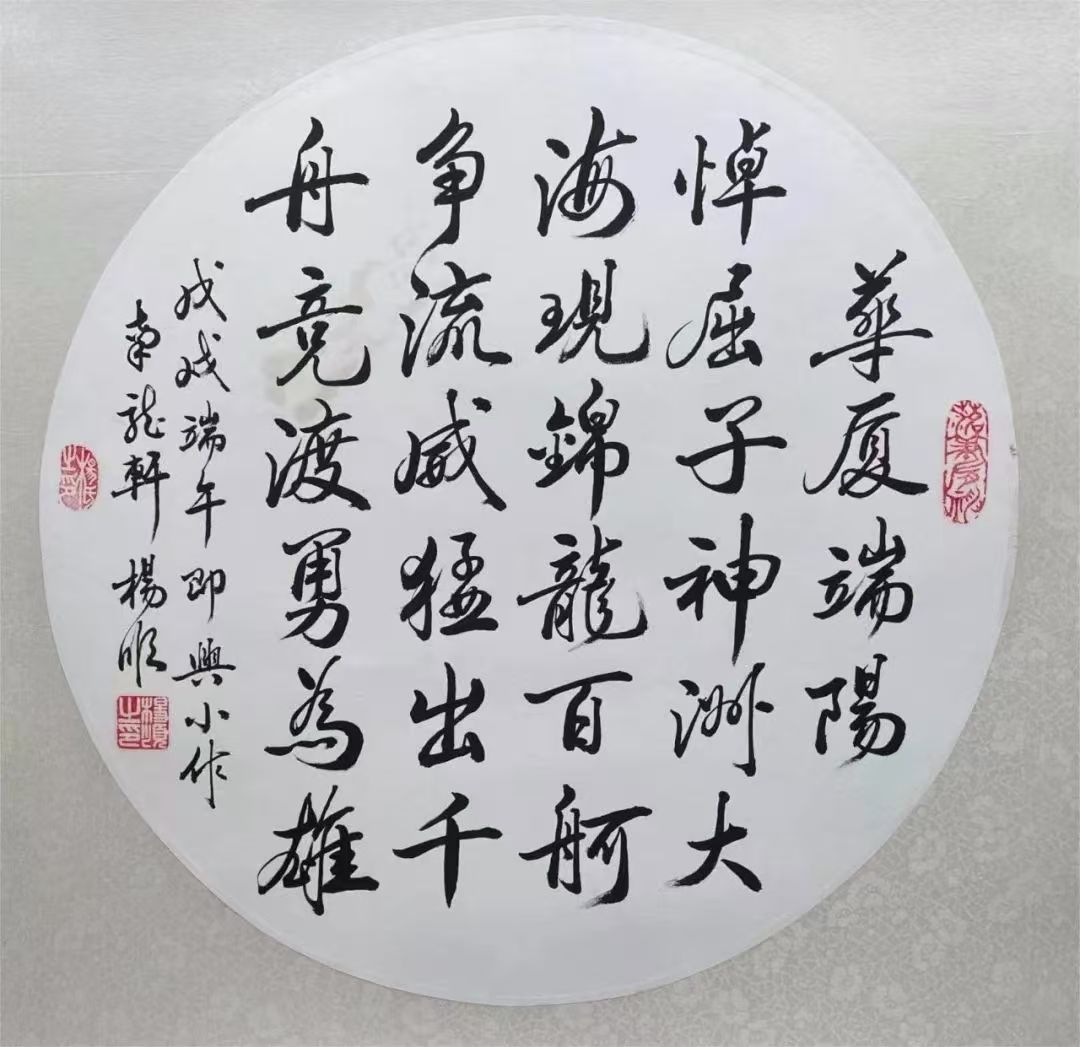 華厦端陽
悼屈子神洲大
海現錦龍百舸
争流威猛出千
舟竞渡勇為雄
戊戌端午即興小作
南龙軒楊順
楊順之印